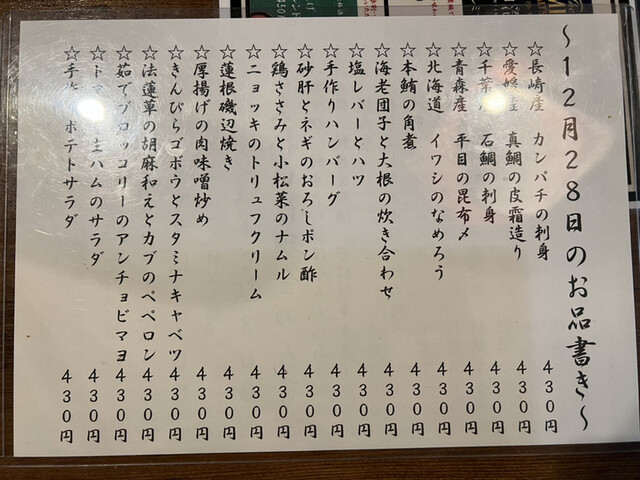 ～12月28日のお品書き～
☆長崎産 カンパチの刺身 430円
☆愛媛産 真鯛の皮霜造り 430円
☆千葉 石鯛の刺身 430円
☆青森産 平目の昆布〆 430円
☆北海道 イワシのなめろう 430円
☆本鮪の角煮 430円
☆海老団子と大根の炊き合わせ 430円
☆塩レバーとハツ 430円
☆手作りハンバーグ 430円
☆砂肝とネギのおろしポン酢 430円
☆鶏ささみと小松菜のナムル 430円
☆ニョッキのトリュフクリーム 430円
☆蓮根磯辺焼き 430円
☆厚揚げの肉味噌炒め 430円
☆きんぴらゴボウとスタミナキャベツ 430円
☆法蓮草の胡麻和えとカブのペペロン 430円
☆茹でブロッコリーのアンチョビマヨ 430円
☆トマ ハムのサラダ 430円
☆手 ポテトサラダ 430円